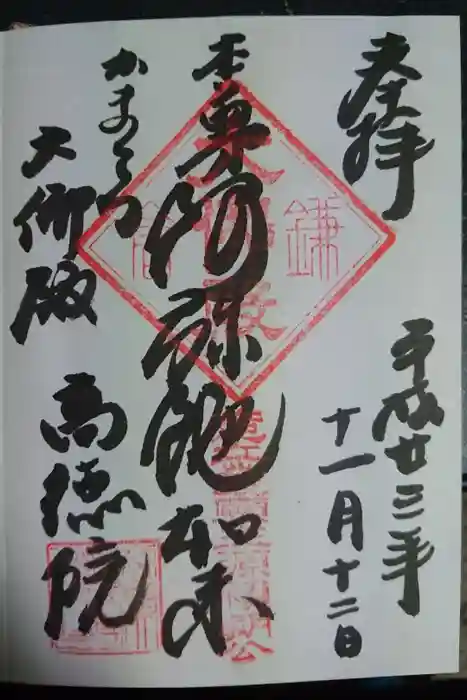 奉拝
平成廿三年
十一月十二日
本尊阿弥陀如来
鎌倉
大佛殿
かまくら
大佛殿
高徳院